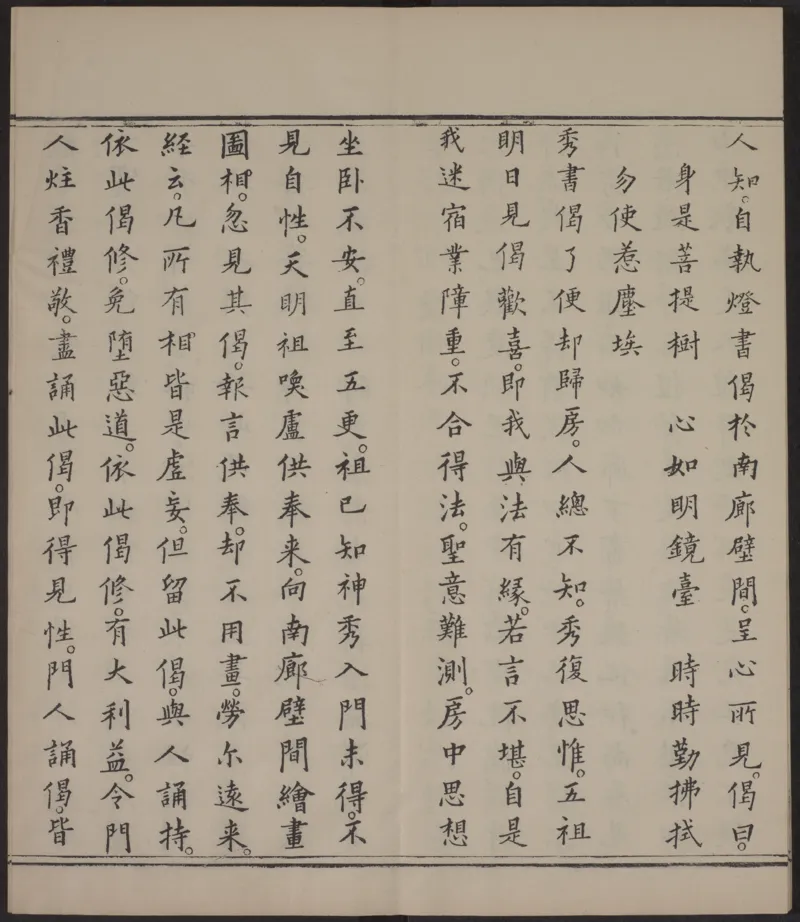 人知。自執燈書偈於南廊壁間。呈心所見。偈曰。
身是菩提樹　心如明鏡臺　時時勤拂拭
勿使惹塵埃
秀書偈了便却歸房。人總不知。秀復思惟。五祖
明日見偈歡喜。即我與法有緣。若言不堪。自是
我迷宿業障重。不合得法。聖意難測。房中思想
坐卧不安。直至五更。祖已知神秀入門未得。不
見自性。天明祖喚盧供奉来。向南廊壁間繪畫
圖相。忽見其偈。報言供奉。却不用畫。勞尔遠来。
經云。凡所有相皆是虛妄。但留此偈。與人誦持。
依此偈修。免墮惡道。依此偈修。有大利益。令門
人炷香禮敬。盡誦此偈。即得見性。門人誦偈。皆